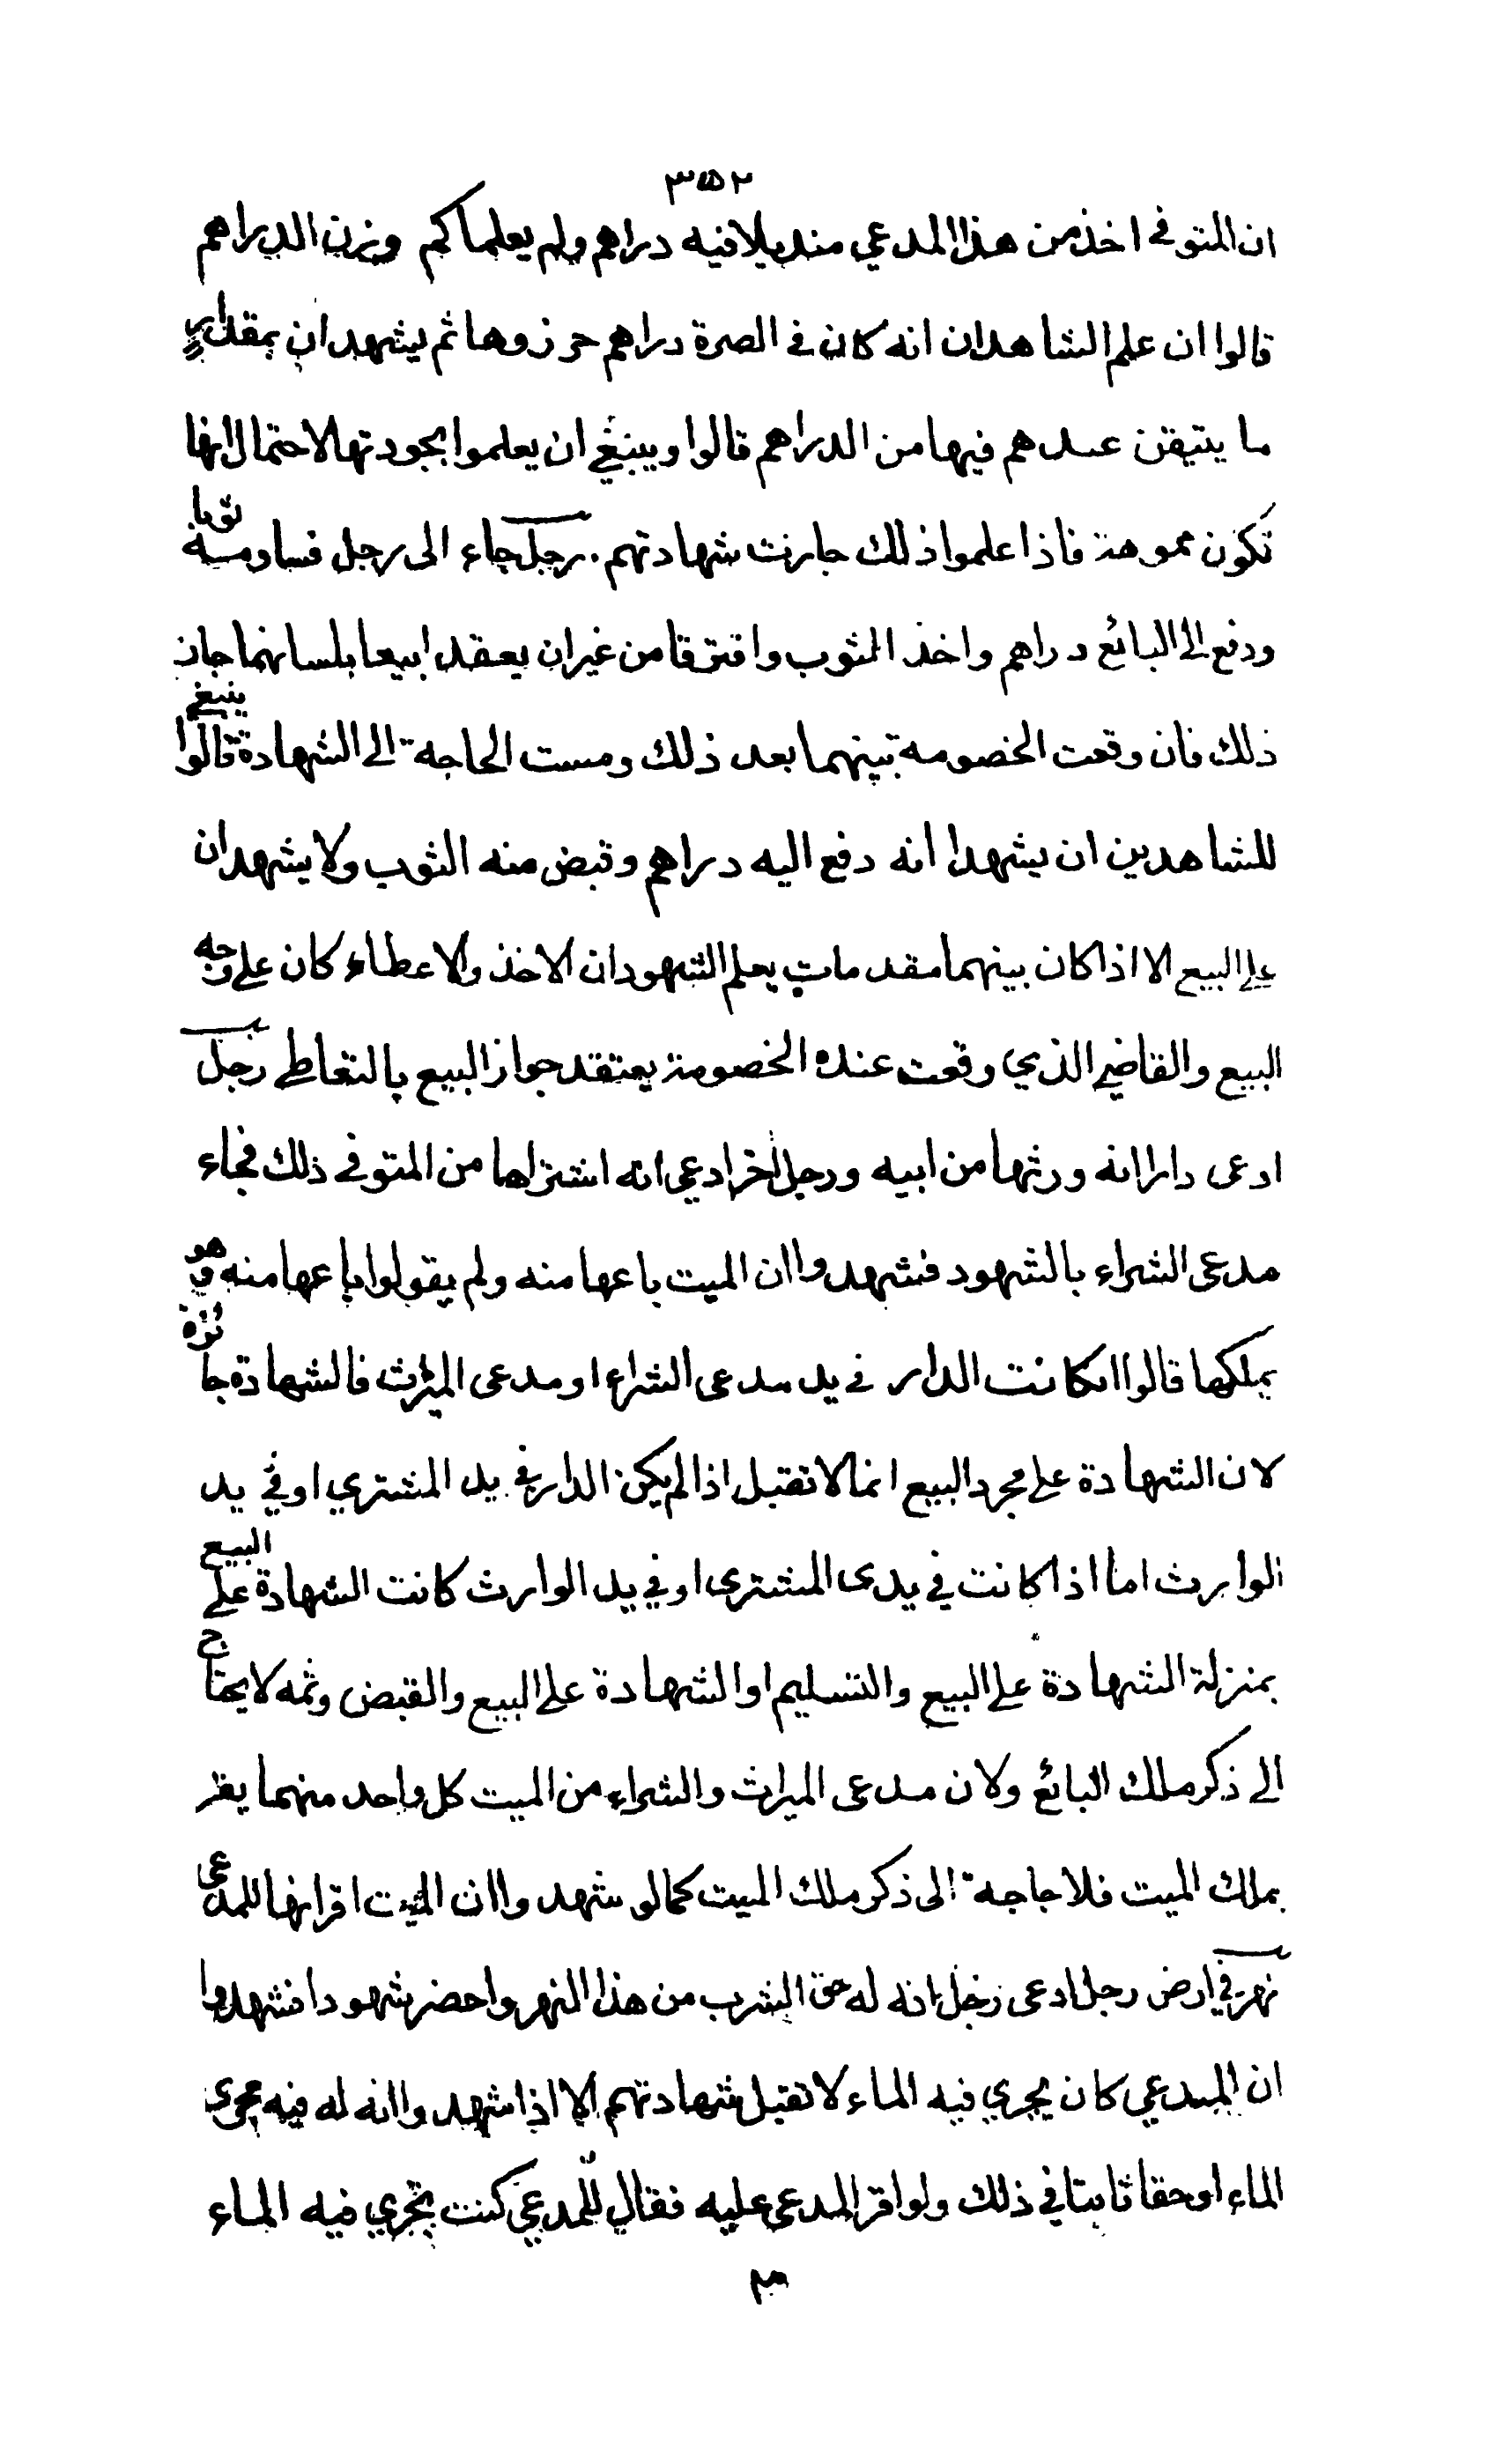 ٣٥٢
ان المتوفى اخذ من هذا المدعي منديلا فيه دراهم ولم يعلما كم وزن الدراهم
قالوا ان علم الشاهدان انه كان في الصرة دراهم حرزوها ثم يشهدان بمقدار
ما يتيقن عددهم فيها من الدراهم قالوا وينبغي ان يعلموا بجودتها لاحتمال انها
تكون مموهة فاذا علموا ذلك جازت شهادتهم . رجل جاء الى رجل فساومه ثوبا
ودفع الى البائع دراهم واخذ الثوب وافترقا من غير ان يعقدا بيعا بلسانهما جاز
ذلك فان وقعت الخصومة بينهما بعد ذلك ومست الحاجة الى الشهادة قالوا ينبغي
للشاهدين ان يشهدا انه دفع اليه دراهم وقبض منه الثوب ولا يشهدان
على البيع الا اذا كان بينهما مقدمات يعلم الشهود ان الاخذ والاعطاء كان على وجه
البيع والقاضي الذي وقعت عنده الخصومة يعتقد جواز البيع بالتعاطي رجل
ادعى دارا انه ورثها من ابيه ورجل اخر ادعى انه اشتراها من المتوفى ذلك فجاء
مدعى الشراء بالشهود فشهدوا ان الميت باعها منه ولم يقولوا باعها منه وهو
يملكها قالوا ان كانت الدار في يد مدعى الشراء او مدعى الميراث فالشهادة جائزة
لان الشهادة على مجرد البيع انما لا تقبل اذا لم يكن الدار في يد المشتري او في يد
الوارث اما اذا كانت في يدى المشترى او في يد الوارث كانت الشهادة على البيع
بمنزلة الشهادة على البيع والتسليم او الشهادة على البيع والقبض وثمه لا يحتاج
الى ذكر ملك البائع ولان مدعى الميراث والشراء من الميت كل واحد منهما يقر
بملك الميت فلا حاجة الى ذكر ملك الميت كما لو شهدوا ان الميت اقر انها للمدعى
نهر في ارض رجل ادعى رجل انه له حق الشرب من هذا النهر واحضر شهودا فشهدوا
ان المدعي كان يجري فيه الماء لا تقبل شهادتهم الا اذا شهدوا انه له فيه مجرى
الماء او حقا ثابتا في ذلك ولو اقر المدعى عليه فقال للمدعي كنت تجري فيه الماء